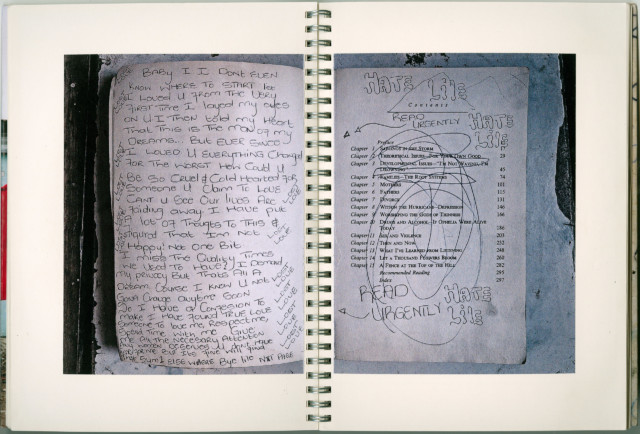 BABY I I DONT EVEN
KNOW WHERE TO START
I LOVED U FROM THE VERY
FIRST TIME I LAYED MY EYES
ON U I THEN TOLD MY HEART
THAT THIS IS THE MAN OF MY
DREAMS... BUT EVER SINCE
I LOVED U EVERYTHING CHANGED
FOR THE WORST HOW COULD U
BE SO CRUEL & COLD HEARTED FOR
SOMEONE U CLAIM TO LOVE
CANT U SEE OUR LIVES ARE
FADING AWAY I HAVE PUT
A LOT OF THOUGHTS TO THIS &
FIGURED THAT IAM NOT
HAPPY! NOT ONE BIT.
I MISS THE QUALITY TIMES
WE USED TO HAVE! I DEMAND
MY PRIVACY BUT THATS ALL A
DREAM COURSE I KNOW U NOT
GONA CHANGE ANYTIME SOON
SO I HAVE A CONFESION TO
MAKE I HAVE FOUND TRUE LOVE
SOMEONE TO LOVE ME, RESPECT ME,
SPEND TIME WITH ME GIVE
ME ALL THE NECESSARY ATTENTION
MY WOMEN DESERVES U DONT HAVE
BUT ITS FINE WILL FIND
ELSE WHERE BYE NXT PAGE
LOST
LOVE
LOST
LOVE
LOST
LOVE
HATE LIFE
Contents
READ
URGENTLY
HATE
LIFE
Preface
Chapter 1 SAPLINGS IN THE STORM
Chapter 2 THEORETICAL ISSUES—FOR YOUR OWN GOOD 29
Chapter 3 DEVELOPMENTAL ISSUES—"I'M NOT WAVING, I'M
DROWNING" 45
Chapter 4 FAMILIES—THE ROOT SYSTEMS 74
Chapter 5 MOTHERS 101
Chapter 6 FATHERS 115
Chapter 7 DIVORCE 131
Chapter 8 WITHIN THE HURRICANE—DEPRESSION 146
Chapter 9 WORSHIPING THE GODS OF THINNESS 166
Chapter 10 DRUGS AND ALCOHOL—IF OPHELIA WERE ALIVE
TODAY 186
Chapter 11 SEX AND VIOLENCE 203
Chapter 12 THEN AND NOW 232
Chapter 13 WHAT I'VE LEARNED FROM LISTENING 248
Chapter 14 LET A THOUSAND FLOWERS BLOOM 260
Chapter 15 A FENCE AT THE TOP OF THE HILL 282
Recommended Reading 295
Index 297
READ
URGENTLY
HATE
LIFE